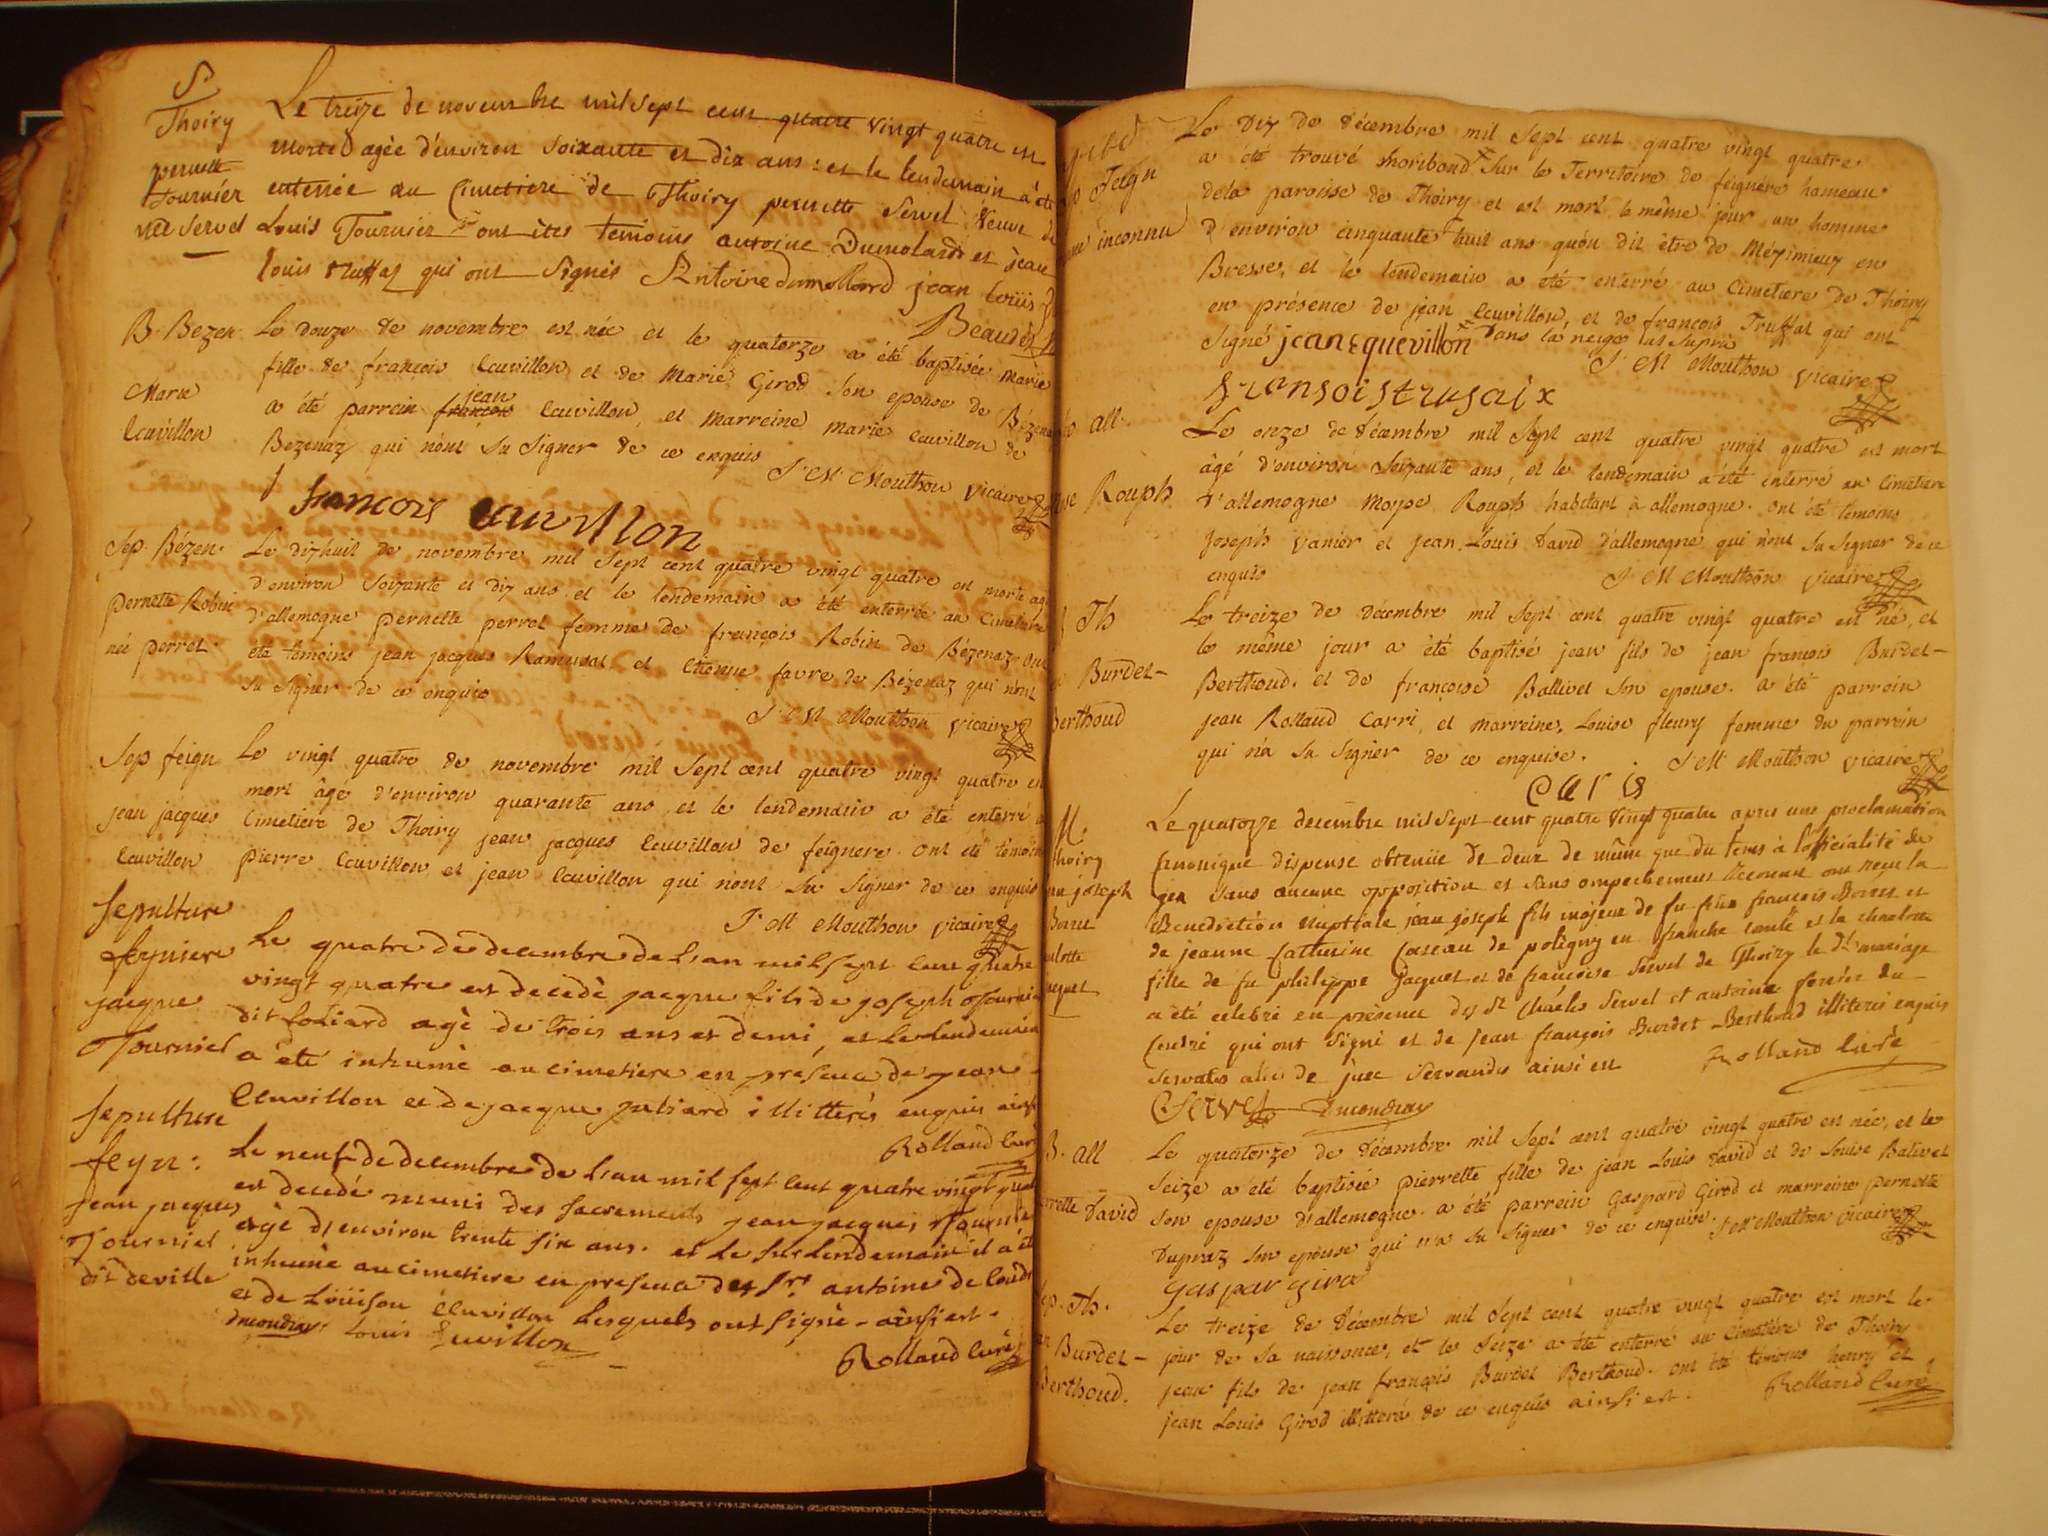 S
Thoiry
pernette
Tournier
née Servel
Le treize de novembre mil sept cent quatre vingt quatre est
morte agée d'environ soixante et dix ans : et le lendemain à été
enterrée au Cimetiere de Thoiry pernette Servel Veuve de
Louis Tournier ont êtes temoins antoine Dumolard et jean
louis truffaz qui ont Signés Antoine dumollard jean louis
Beaudet
B. Bezen
Marie
Cuvillon
Le douze de novembre est née et le quatorze a été baptisée marie
fille de françois Cuvillon et de Marie Girod son epouse de Bézena
jean
a été parrein françois Cuvillon, et marreine marie Cuvillon de
Bezenaz qui n'ont su signer de ce enquis
J. M. Mouthon vicaire
francois Cuvillon
Sep. Bézen.
pernette Robin
née perret.
Le dixhuit de novembre mil sept cent quatre vingt quatre est morte ag
d'environ soixante et dix ans et le lendemain a été enterrée au Cimetiere
d'allemogne pernette perret femme de françois Robin de Bézenaz. ont
été temoins jean jacques Ramusat et Etienne favre de Bézenaz qui n'ont
su signer de ce enquis
J. M. Mouthon vicaire
Sep feign
jean jacques
Cuvillon
Le vingt quatre de novembre mil sept cent quatre vingt quatre est
mort âgé d'environ quarante ans, et le lendemain a été enterré
Cimetiere de Thoiry jean jacques Cuvillon de feignere. ont été témoin
pierre Cuvillon et jean Cuvillon qui n'ont su signer de ce enquis
J. M. Mouthon vicaire
Sepulture
feyniere
jacque
Tournier
Le quatre de decembre de l'an mil sept cent quatre
vingt quatre est decedé jacque fils de joseph Tournier
dit agé de trois ans et demi, et le lendemain
a été inhumé au cimetiere en presence de jean
Cuvillon et de jacque juliard illitterés enquis ainsi
Rolland curé
Sepulture
feyn :
jean jacques
Tournier
dit deville
Le neuf de decembre de l'an mil sept cent quatre vingt quat
est decedé muni des sacrements jean jacques Tournier
agé d'environ trente six ans. et le surlendemain il a été
inhumé au cimetiere en presence des Srs antoine de
et de Loüison Cuvillon lesquels ont signé - ainsi est -
ducoudray Louis Cuvillon
Rolland curé
Feign
inconnu
Le Dix de décembre mil sept cent quatre vingt quatre
a été trouvé moribond sur le Territoire de feignére hameau
dela paroisse de Thoiry et est mort le même jour un homme
d'environ cinquante huit ans qu'on dit être de Méximieux en
Bresse, et le lendemain a été enterré au Cimetiere de Thoiry
en présence de jean Cuvillon, et de françois Truffat qui ont
signé jean equevillon Dans la neige ut supra
J. M Mouthon vicaire
fransois trufaix
all.
Rouph
Le onze de décembre mil sept cent quatre vingt quatre est mort
âgé d'environ soixante ans, et le lendemain a été interré au Cimetiere
d'allemogne Moyse Rouph habitant à allemogne. ont été temoins
joseph vanier et jean-Louis David d'allemogne qui n'ont su signer de ce
enquis
J. M Mouthon vicaire
Th
Burdet-
Berthoud
Le treize de décembre mil sept cent quatre vingt quatre est né, et
le même jour a été baptisé jean fils de jean françois Burdet-
Berthoud. et de françoise Ballivet son epouse. a été parrein
jean Rolland Carri, et marreine, Louise fleury femme du parrein
qui n'a su signer de ce enquise.
J. M Mouthon vicaire
Cari
M.
Thoiry
joseph
Borre
jaquet
Le quatorze decembre mil sept cent quatre vingt quatre apres une proclamation
canonique dispense obtenüe de deux de même que du tems à l'officialité de
gex sans aucune opposition et sans empechement reconnu ont reçu la
Benediction nuptiale jean joseph fils majeur de fu françois Borre et
de jeanne Catherine de poligny en franche comté et la charlotte
fille de fu philippe jaquet et de françoise Servel de Thoiry le dt mariage
a été celebré en presence des Sr Charles Servel et antoine
qui ont signé et de jean françois Burdet Berthoud illiteré enquis
servatis de jure servandis ainsi est
Rolland curé
C Servel ducoudray
B. all
David
Le quatorze de décembre mil sept cent quatre vingt quatre est née, et le
seize a été baptisée pierrette fille de jean Louis David et de Louise Balivet
son epouse d'allemogne. a été parrein gaspard Girod et marreine pernette
Dupraz son epouse qui n'a su signer de ce enquise. J. M Mouthon vicaire
gaspar giro
Sep. Th.
Burdet-
Berthoud.
Le treize de décembre mil sept cent quatre vingt quatre est mort le
jour de sa naissance, et le seize a été enterré au Cimetière de Thoiry
jean fils de jean françois Burdet Berthoud. ont été témoins henry et
jean Louis Girod illitteré de ce enquis ainsi est.
Rolland curé